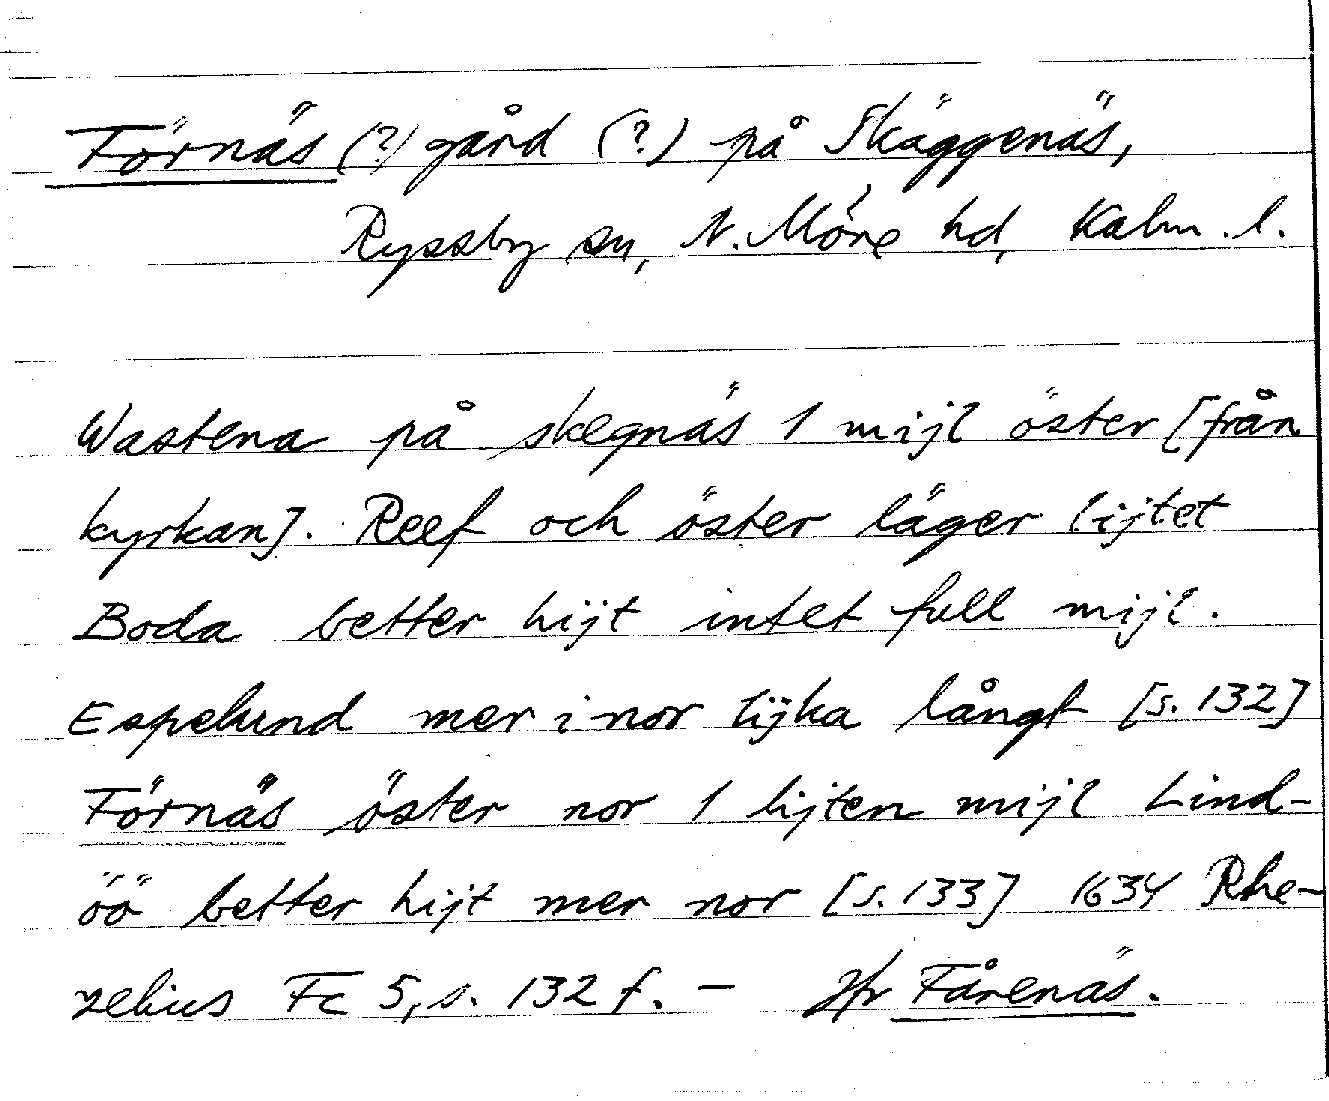 Förnäs (?) gård (?) på Skäggenäs,
Ryssby sn, N. Möre hd, Kalm. l.
Wastena på skegnäs 1 mijl öster [från
kyrkan]. Reef och öster läger lijtet
Boda better hijt intet full mijl.
Espelund mer i nor lijka långt [s. 132]
Förnäs öster nor 1 lijten mijl Lind-
öö better hijt mer nor [s. 133] 1634 Rhe-
zelius Fc 5, s. 132 f. – Jfr Fårenäs.